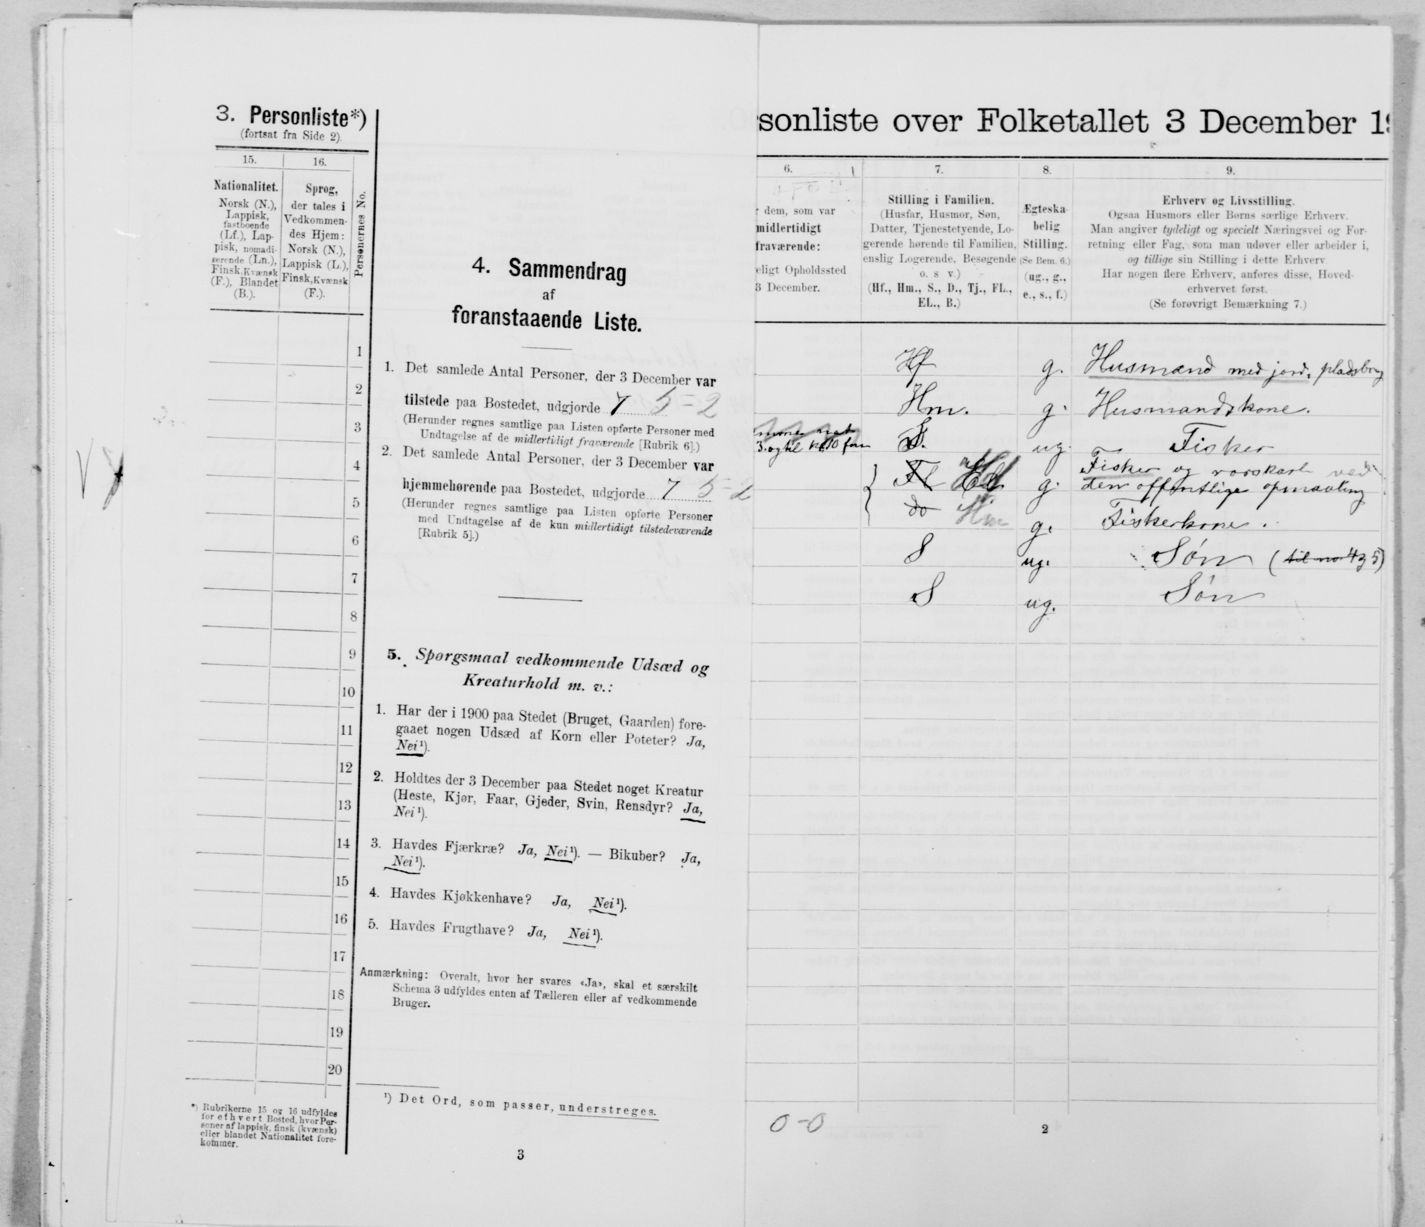 3. Personliste*)
(fortsat fra Side 2).
15.
16.
Nationalitet.
Norsk (N.),
Lappisk,
fastboende
(Lf.), Lap-
pisk, nomadi-
serende (Ln.),
Finsk, Kvænsk
(F.), Blandet
(B.).
Sprog,
der tales i
Vedkommen-
des Hjem:
Norsk (N.),
Lappisk (L.),
Finsk, Kvænsk
(F.).
Personernes No.
1
2
3
4
5
6
7
8
9
10
11
12
13
14
15
16
17
18
19
20
*) Rubrikerne 15 og 16 udfyldes
for ethvert Bosted, hvor Per-
soner af lappisk, finsk (kvænsk)
eller blandet Nationalitet fore-
kommer.
4. Sammendrag
af
foranstaaende Liste.
1. Det samlede Antal Personer, der 3 December var
tilstede paa Bostedet, udgjorde 7 5=2
(Herunder regnes samtlige paa Listen opførte Personer med
Undtagelse af de midlertidigt fraværende [Rubrik 6].)
2. Det samlede Antal Personer, der 3 December var
hjemmehørende paa Bostedet, udgjorde 7 5=2
(Herunder regnes samtlige paa Listen opførte Personer
med Undtagelse af de kun midlertidigt tilstedeværende
[Rubrik 5].)
5. Spørgsmaal vedkommende Udsæd og
Kreaturhold m. v.:
1. Har der i 1900 paa Stedet (Bruget, Gaarden) fore-
gaaet nogen Udsæd af Korn eller Poteter? Ja,
Nei¹).
2. Holdtes der 3 December paa Stedet noget Kreatur
(Heste, Kjør, Faar, Gjeder, Svin, Rensdyr? Ja,
Nei¹).
3. Havdes Fjærkræ? Ja, Nei¹). — Bikuber? Ja,
Nei¹).
4. Havdes Kjøkkenhave? Ja, Nei¹).
5. Havdes Frugthave? Ja, Nei¹).
Anmærkning: Overalt, hvor her svares «Ja», skal et særskilt
Schema 3 udfyldes enten af Tælleren eller af vedkommende
Bruger.
¹) Det Ord, som passer, understreges.
3
sonliste over Folketallet 3 December 1
6.
7.
8.
9.
dem, som var
midlertidigt
fraværende:
eligt Opholdssted
3 December.
Stilling i Familien.
(Husfar, Husmor, Søn,
Datter, Tjenestetyende, Lo-
gerende hørende til Familien,
enslig Logerende, Besøgende
o. s v.)
(Hf., Hm., S., D., Tj., FL.,
EL., B.)
Ægteska-
belig
Stilling.
(Se Bem. 6.)
(ug., g.,
e., s., f.)
Erhverv og Livsstilling.
Ogsaa Husmors eller Børns særlige Erhverv.
Man angiver tydeligt og specielt Næringsvei og For-
retning eller Fag, som man udøver eller arbeider i,
og tillige sin Stilling i dette Erhverv
Har nogen flere Erhverv, anføres disse, Hoved-
erhvervet først.
(Se forøvrigt Bemærkning 7.)
Hf g. Husmand med jord,
Hm. g. Husmandskone.
S. ug. Fisker
Fl g. Fisker og rorskarl ved
den offentlige opmaaling
do Hm g. Fiskerkone.
S ug. Søn (til no 4 & 5)
S ug. Søn
0-0
2